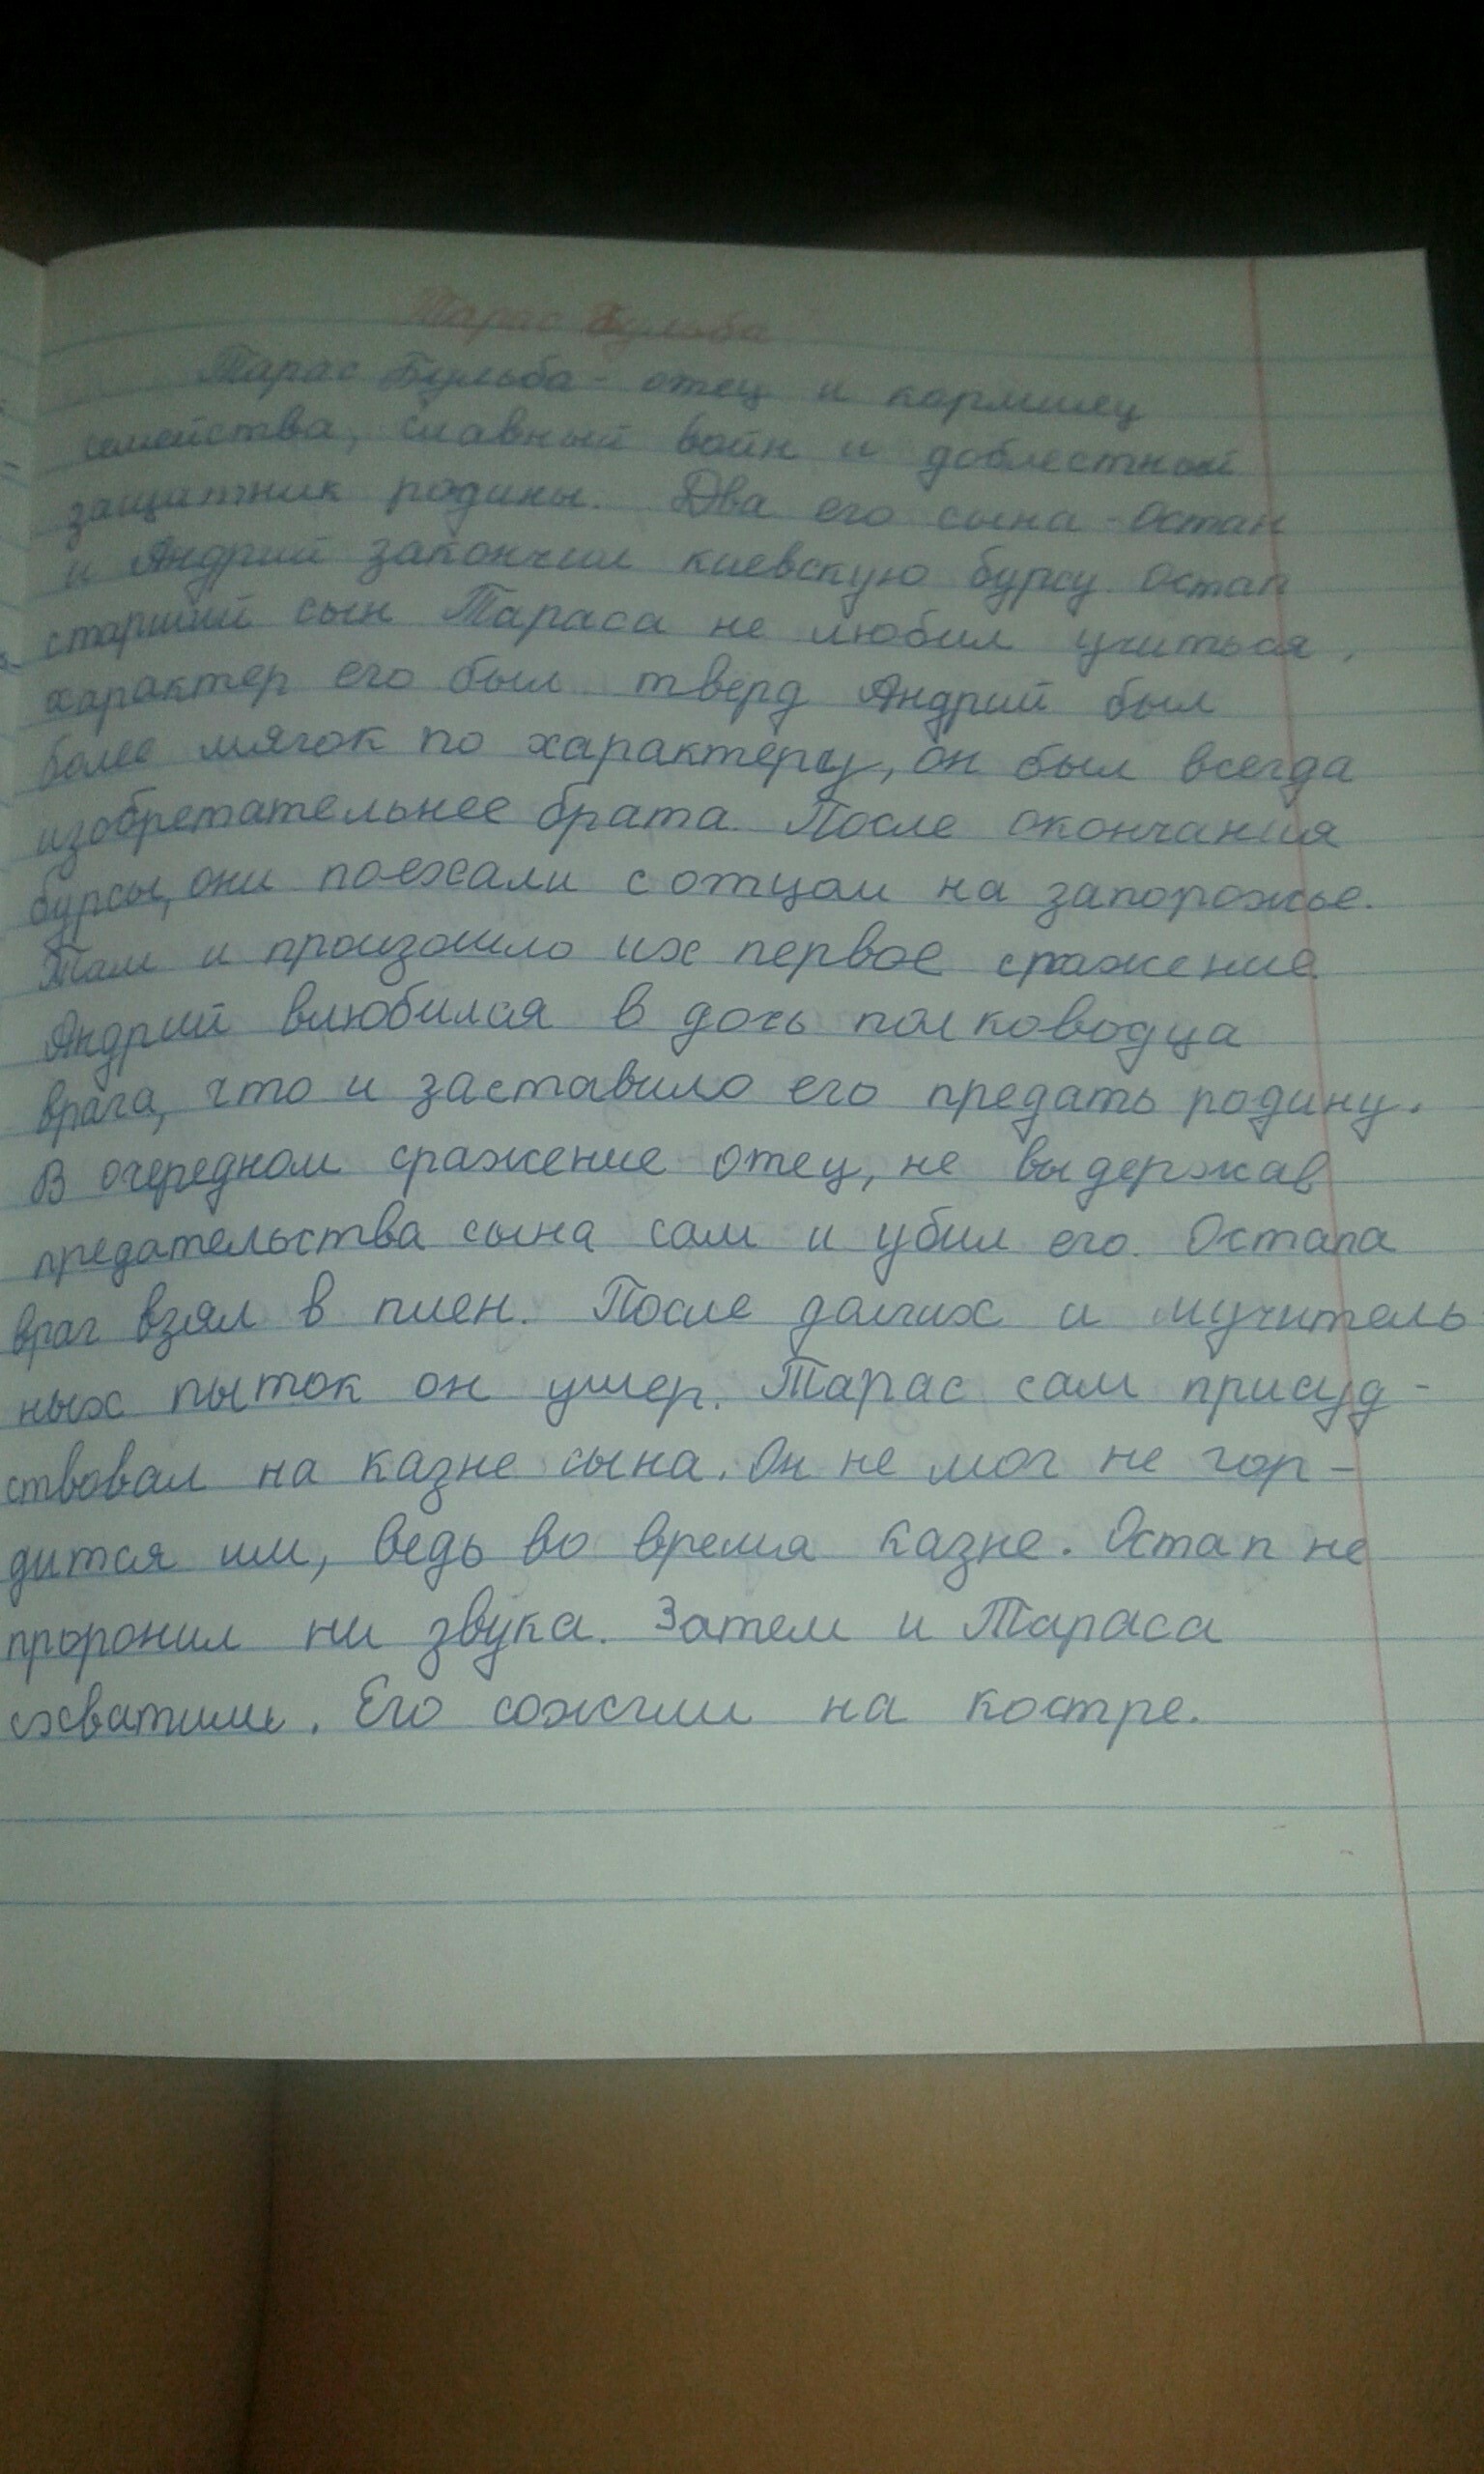 Тарас Бульба
Тарас Бульба - отец и кормилец
семейства, славный войн и доблестный
защитник родины. Два его сына - Остап
и Андрий закончил киевскую бурсу. Остап
старший сын Тараса не любил учиться,
характер его был твёрд Андрий был
более мягок по характеру, он был всегда
изобретательнее брата. После окончания
бурсы, они поехали с отцом на запорожье.
Там и произошло их первое сражение
Андрий влюбился в дочь полководца
врага, что и заставило его предать родину.
В очередном сражение отец, не выдержав
предательства сына сам и убил его. Остапа
враг взял в плен. После долгих и мучитель
ных пыток он умер. Тарас сам присуд-
ствовал на казне сына. Он не мог не гор-
дится им, ведь во время казне. Остап не
проронил ни звука. Затем и Тараса
схватили. Его сожгли на костре.